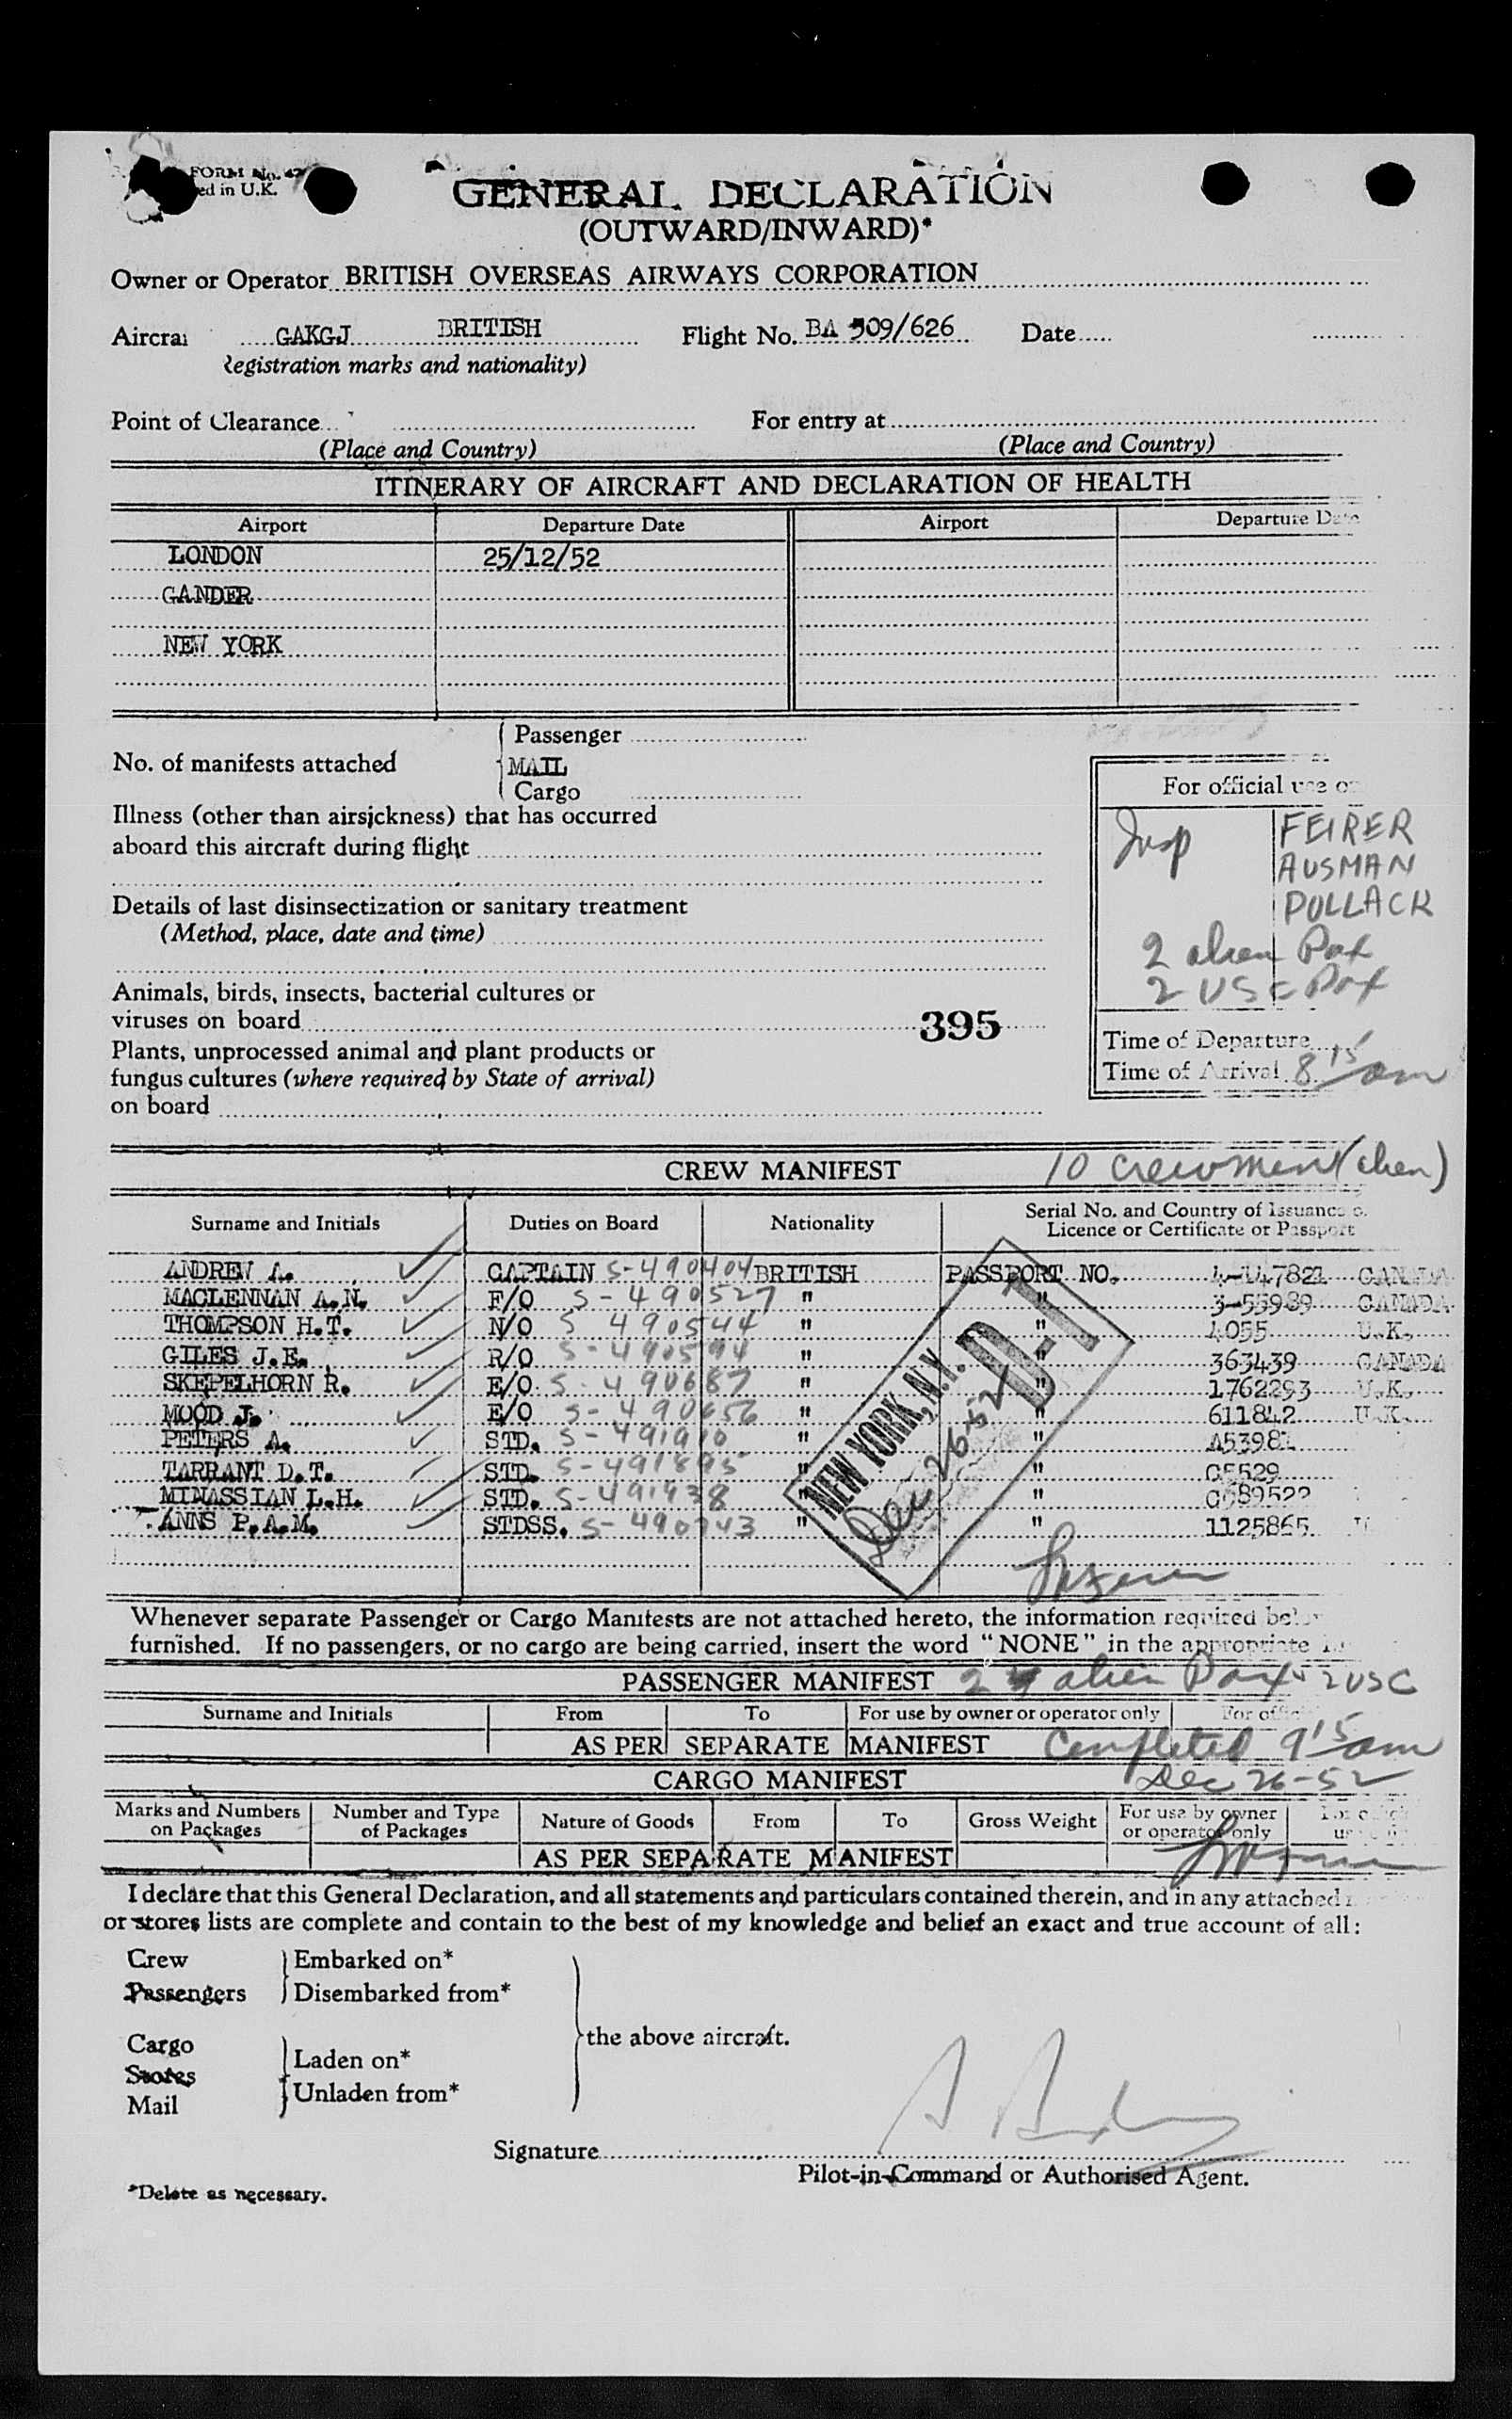 FORM No. 47
ed in U.K.
GENERAL DECLARATION
(OUTWARD/INWARD)*
Owner or Operator BRITISH OVERSEAS AIRWAYS CORPORATION
Aircra GAKGJ BRITISH Flight No. BA 509/626 Date
Registration marks and nationality)
Point of Clearance For entry at
(Place and Country) (Place and Country)
ITINERARY OF AIRCRAFT AND DECLARATION OF HEALTH
Airport Departure Date Airport Departure Date
LONDON 25/12/52
GANDER
NEW YORK
Passenger
No. of manifests attached MAIL
Cargo
For official use o
Illness (other than airsickness) that has occurred
aboard this aircraft during flight
Insp FEIRER
AUSMAN
POLLACK
Details of last disinsectization or sanitary treatment
(Method, place, date and time)
2 alien Pax
2 USC Pax
Animals, birds, insects, bacterial cultures or
viruses on board 395
Plants, unprocessed animal and plant products or
fungus cultures (where required by State of arrival)
on board
Time of Departure
Time of Arrival 8 15 am
CREW MANIFEST 10 crewmen (alien)
Surname and Initials Duties on Board Nationality Serial No. and Country of Issuance o.
Licence or Certificate or Passport
ANDREW A. CAPTAIN S-490404 BRITISH PASSPORT NO. 4-147821 CANADA
MACLENNAN A.N. F/O S-490527 " " 3-55989 CANADA
THOMPSON H.T. N/O S 490544 " " 4055 U.K.
GILES J.E. R/O S-490594 " 363439 CANADA
SKEPELHORN R. E/O S-490687 " 1762293 U.K.
MOOD J. E/O S-490656 " " 611842 U.K.
PETERS A. STD. S-491910 " " A53981
TARRANT D.T. STD. S-491895 " " C5529
MINASSIAN L.H. STD. S-491938 " " C689522
ANNS P.A.M. STDSS. S-490743 " " 1125865
NEW YORK, N.Y.
Dec 26-52
D-1
Whenever separate Passenger or Cargo Manifests are not attached hereto, the information required belo
furnished. If no passengers, or no cargo are being carried, insert the word "NONE" in the appropriate
PASSENGER MANIFEST 2 alien Pax 2 USC
Surname and Initials From To For use by owner or operator only For offic
AS PER SEPARATE MANIFEST Completed 9 15 am
CARGO MANIFEST Dec 26-52
Marks and Numbers on Packages Number and Type of Packages Nature of Goods From To Gross Weight For use by owner or operator only
AS PER SEPARATE MANIFEST
I declare that this General Declaration, and all statements and particulars contained therein, and in any attached
or stores lists are complete and contain to the best of my knowledge and belief an exact and true account of all:
Crew Embarked on*
Passengers Disembarked from*
the above aircraft.
Cargo
Stores Laden on*
Mail Unladen from*
Signature
Pilot-in-Command or Authorised Agent.
*Delete as necessary.